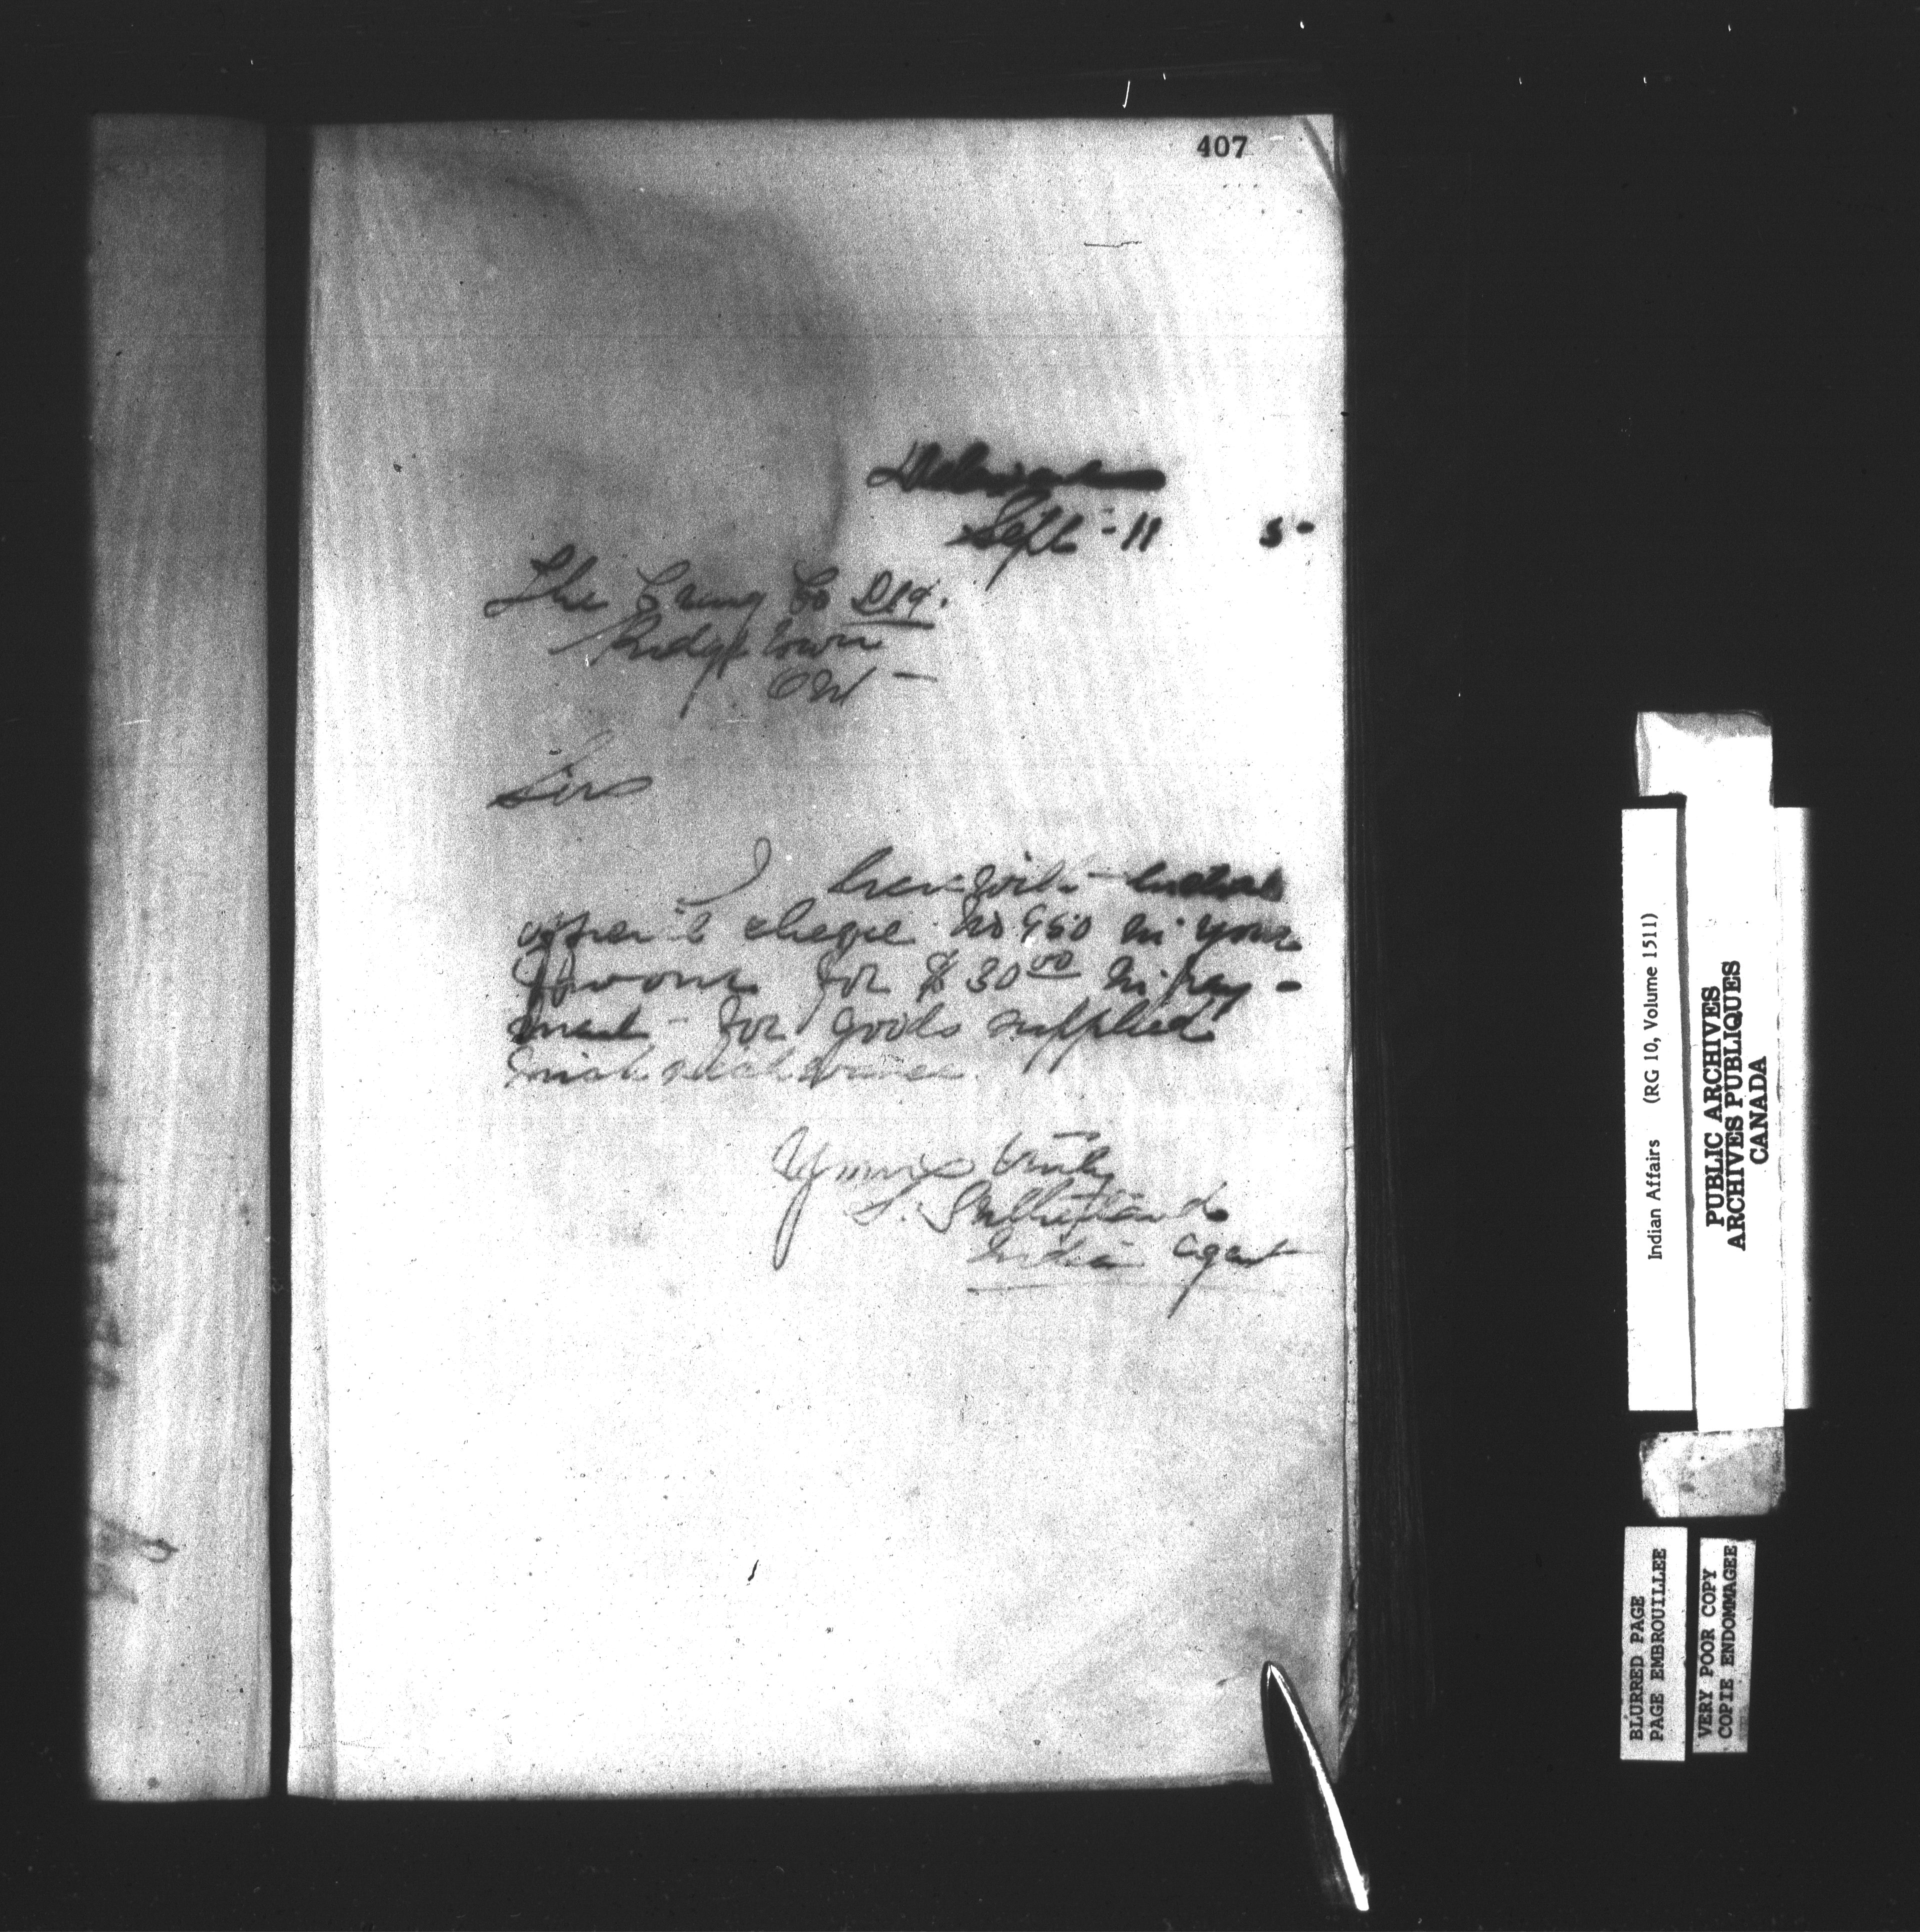 407
Delaware
Sept - 11 5 -
The Craig Co Ltd.
Ridgetown
Ont -
Sirs
I herewith enclose
cheque No 950 in your
favour for $ 30 00 in pay -
ment - for goods supplied
Yours truly
S. Sutherland
Indian Agent
Indian Affairs (RG 10, Volume 1511)
PUBLIC ARCHIVES
ARCHIVES PUBLIQUES
CANADA
BLURRED PAGE
PAGE EMBROUILLEE
VERY POOR COPY
COPIE ENDOMMAGEE